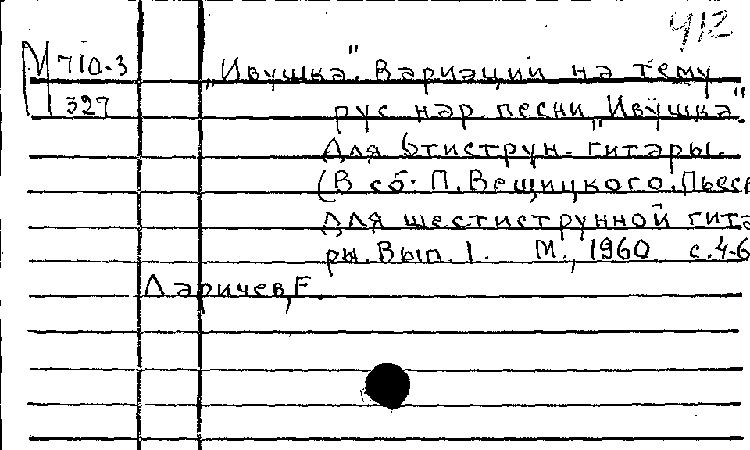 412
М 710-3 „Ивушка". Вариации на тему
327 рус нар песни „Ивушка".
Для 6тиструн. гитары.
(В сб: П. Вещицкого. Пьесы
для шестиструнной гита
ры. Вып. 1. М., 1960 с. 4-6
Ларичев, Е.